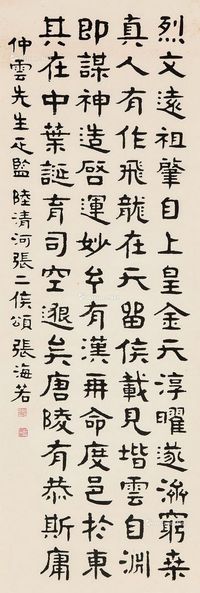 烈文遠祖肇自上皇金天淳曜遂濟窮桑
真人有作飛龍在天留侯載見堦雲自淵
即謀神造啓運妙玄有漢再命度邑於東
其在中葉誕育司空邈矣唐陵有恭斯庸
仲雲先生正監 陸清河張二侯頌 張海若